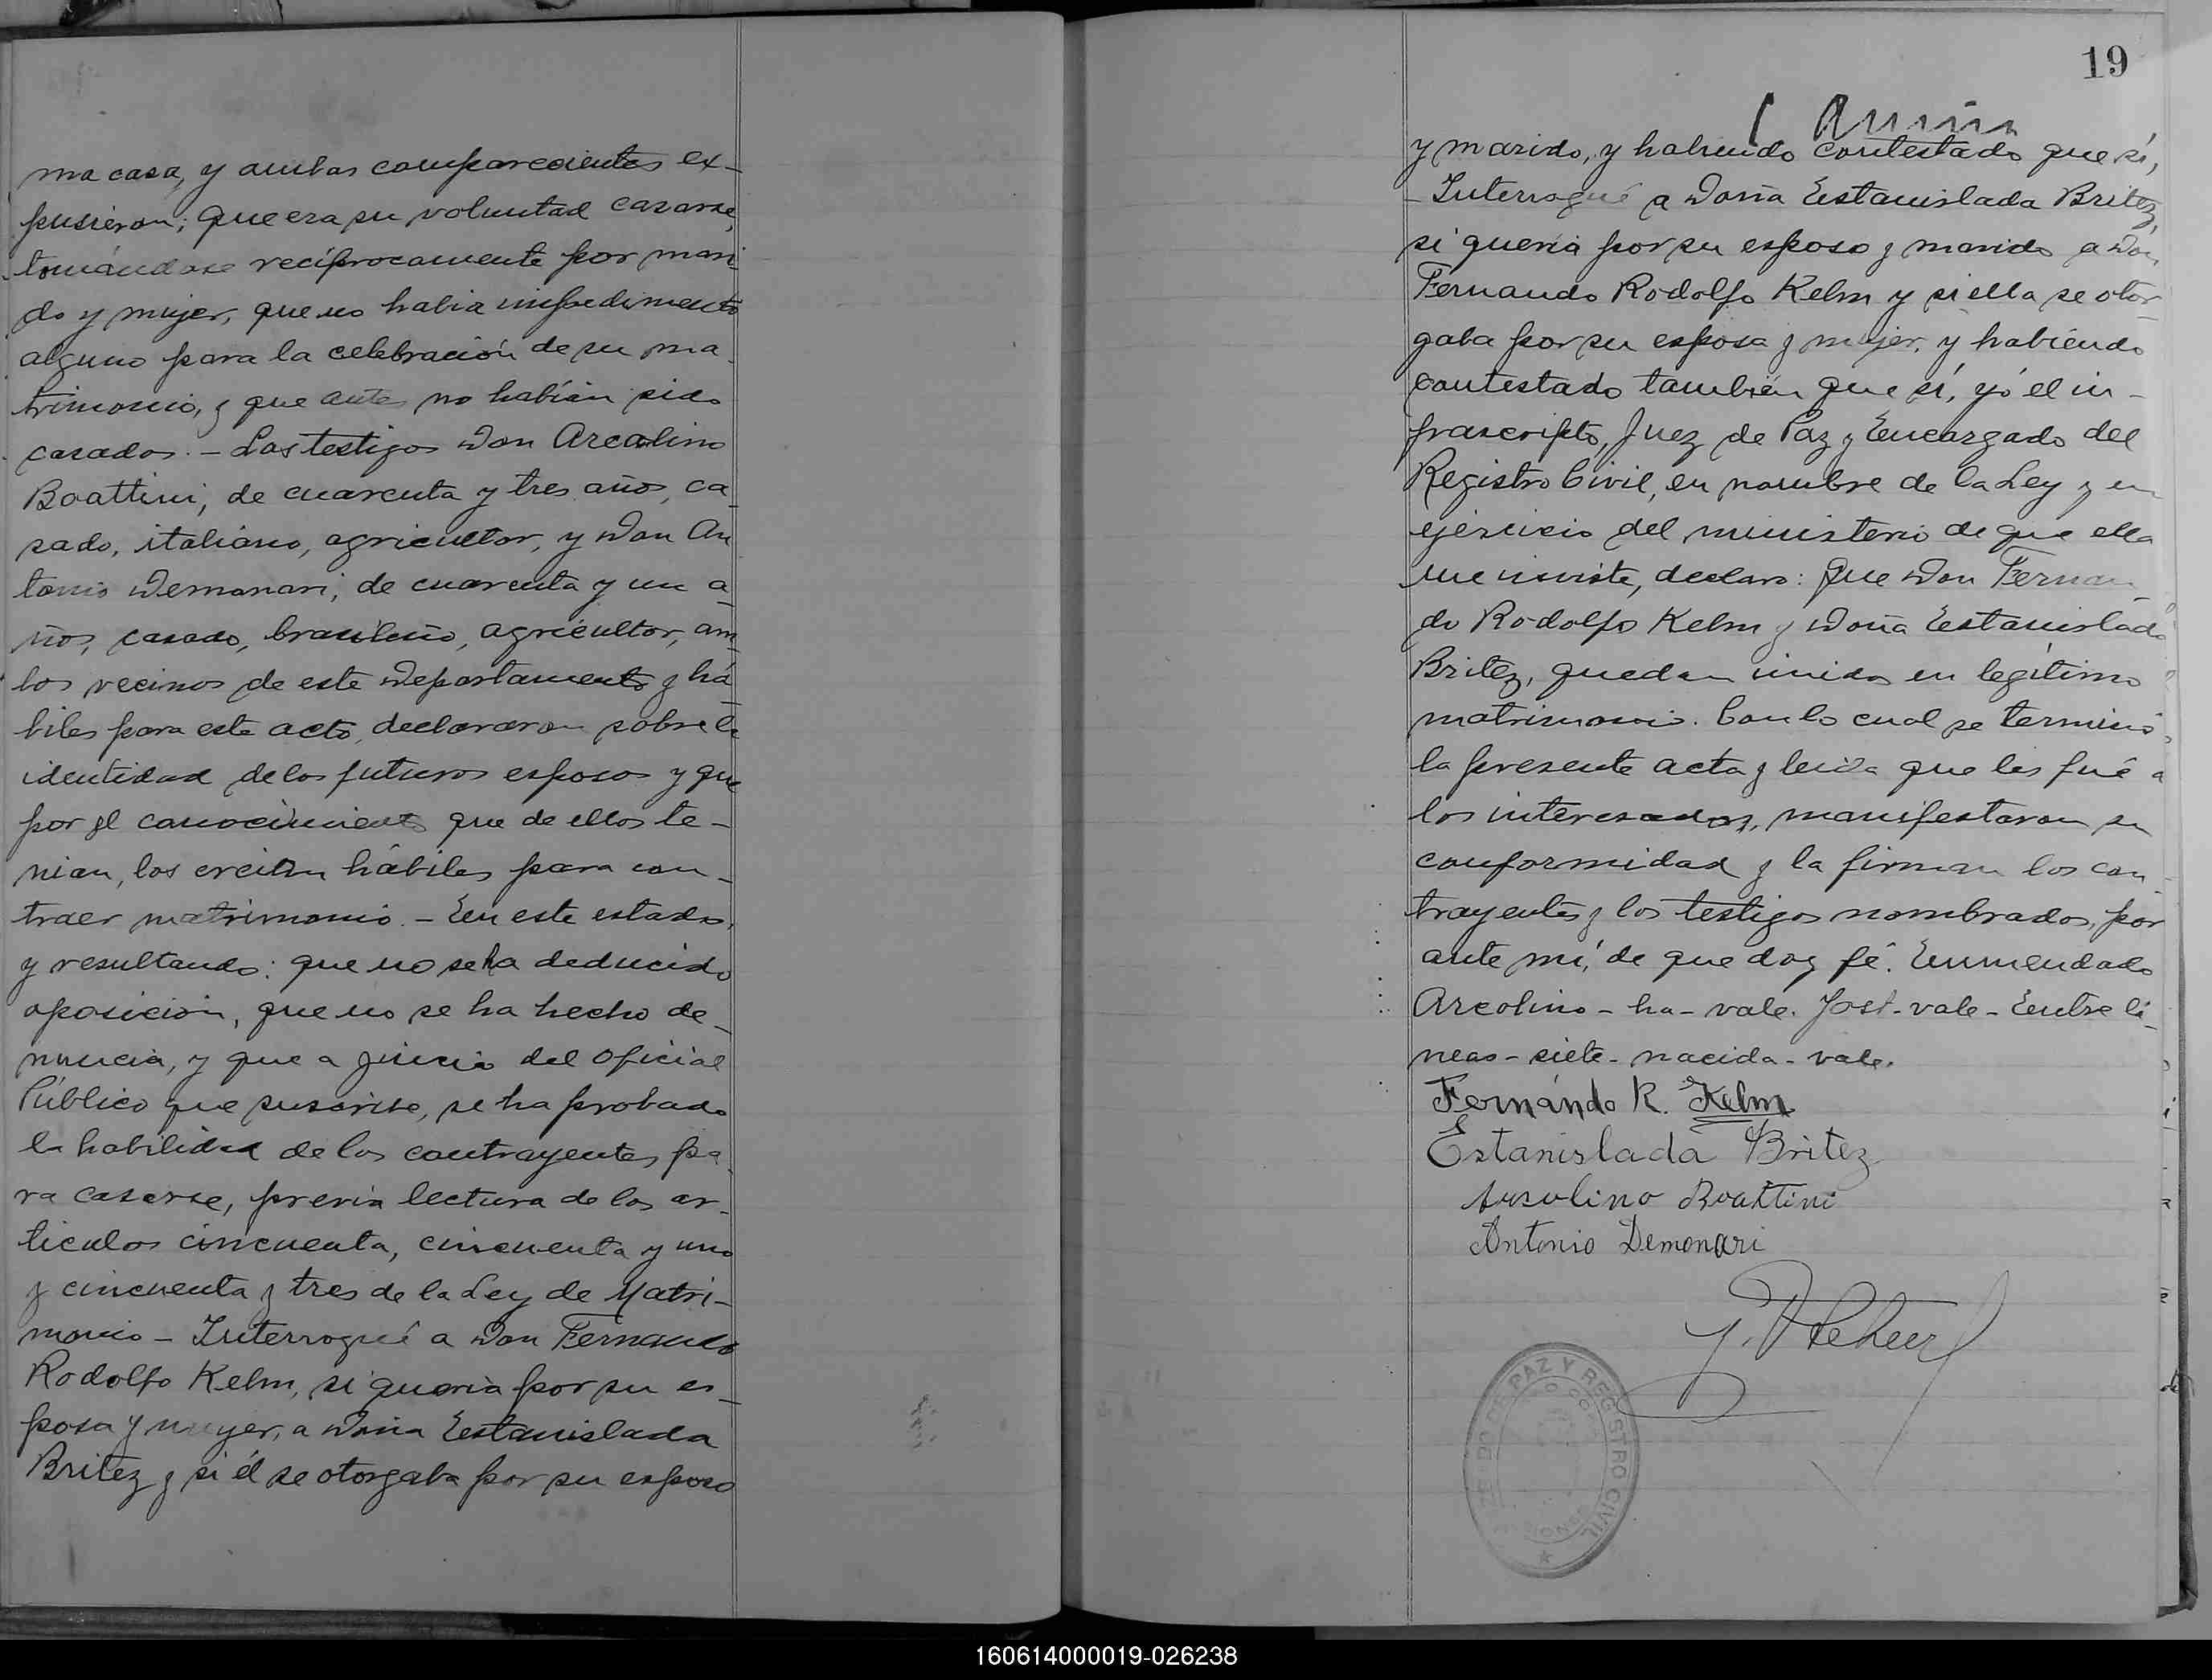 ma casa, y ambos comparecientes ex-
pusieron; que era su voluntad casarse,
tomándose recíprocamente por mari-
do y mujer, que no habia impedimento
alguno para la celebración de su ma-
trimonio, y que antes no habían sido
casados.- Los testigos Don Arcolino
Boattini, de cuarenta y tres años, ca-
sado, italiano, agricultor, y Don An
tonio Demonari, de cuarenta y un a-
ños, casado, brasileño, agricultor, am-
bos vecinos de este Departamento y há
biles para este acto, declararon sobre la
identidad de los futuros esposos y que
por el conocimiento que de ellos te-
nian, los creían hábiles para con-
traer matrimonio.- En este estado,
y resultando: que no se ha deducido
oposición, que no se ha hecho de-
nuncia, y que a juicio del Oficial
Público que suscribe, se ha probado
la habilidad de los contrayentes pa-
ra casarse, previa lectura de los ar-
ticulos cincuenta, cincuenta y uno
y cincuenta y tres de la Ley de Matri-
monio - Interrogué a Don Fernando
Rodolfo Kelm, si queria por su es-
posa y muyer, a Doña Estanislada
Britez y si él se otorgaba por su esposo
19
y marido, y habiendo contestado que sí,
- Interrogué a Doña Estanislada Britez,
si queria por su esposo y marido a Don
Fernando Rodolfo Kelm y si ella se otor-
gaba por su esposa y mujer, y habiéndo
contestado también que sí, yó el in-
frascripto, Juez de Paz y Encargado del
Registro Civil, en nombre de la Ley y en
ejercicio del ministerio de que ella
me inviste, declaro: Que Don Fernan-
do Rodolfo Kelm y Doña Estanislada
Britez, quedan unidos en legítimo
matrimonio. Con lo cual se terminó
la presente acta y leida que les fué a
los interesados, manifestaron su
conformidad y la firman los con-
trayentes y los testigos nombrados, por
ante mí, de que doy fé. Enmendado
Arcolino - ha - vale. - vale - Entre lí-
neas - siete - nacida - vale.
Fernándo R. Kelm
Estanislada Britez
Arsolino Boattini
Antonio Demonari
DO DE PAZ Y REGISTRO CIVIL
160614000019-026238